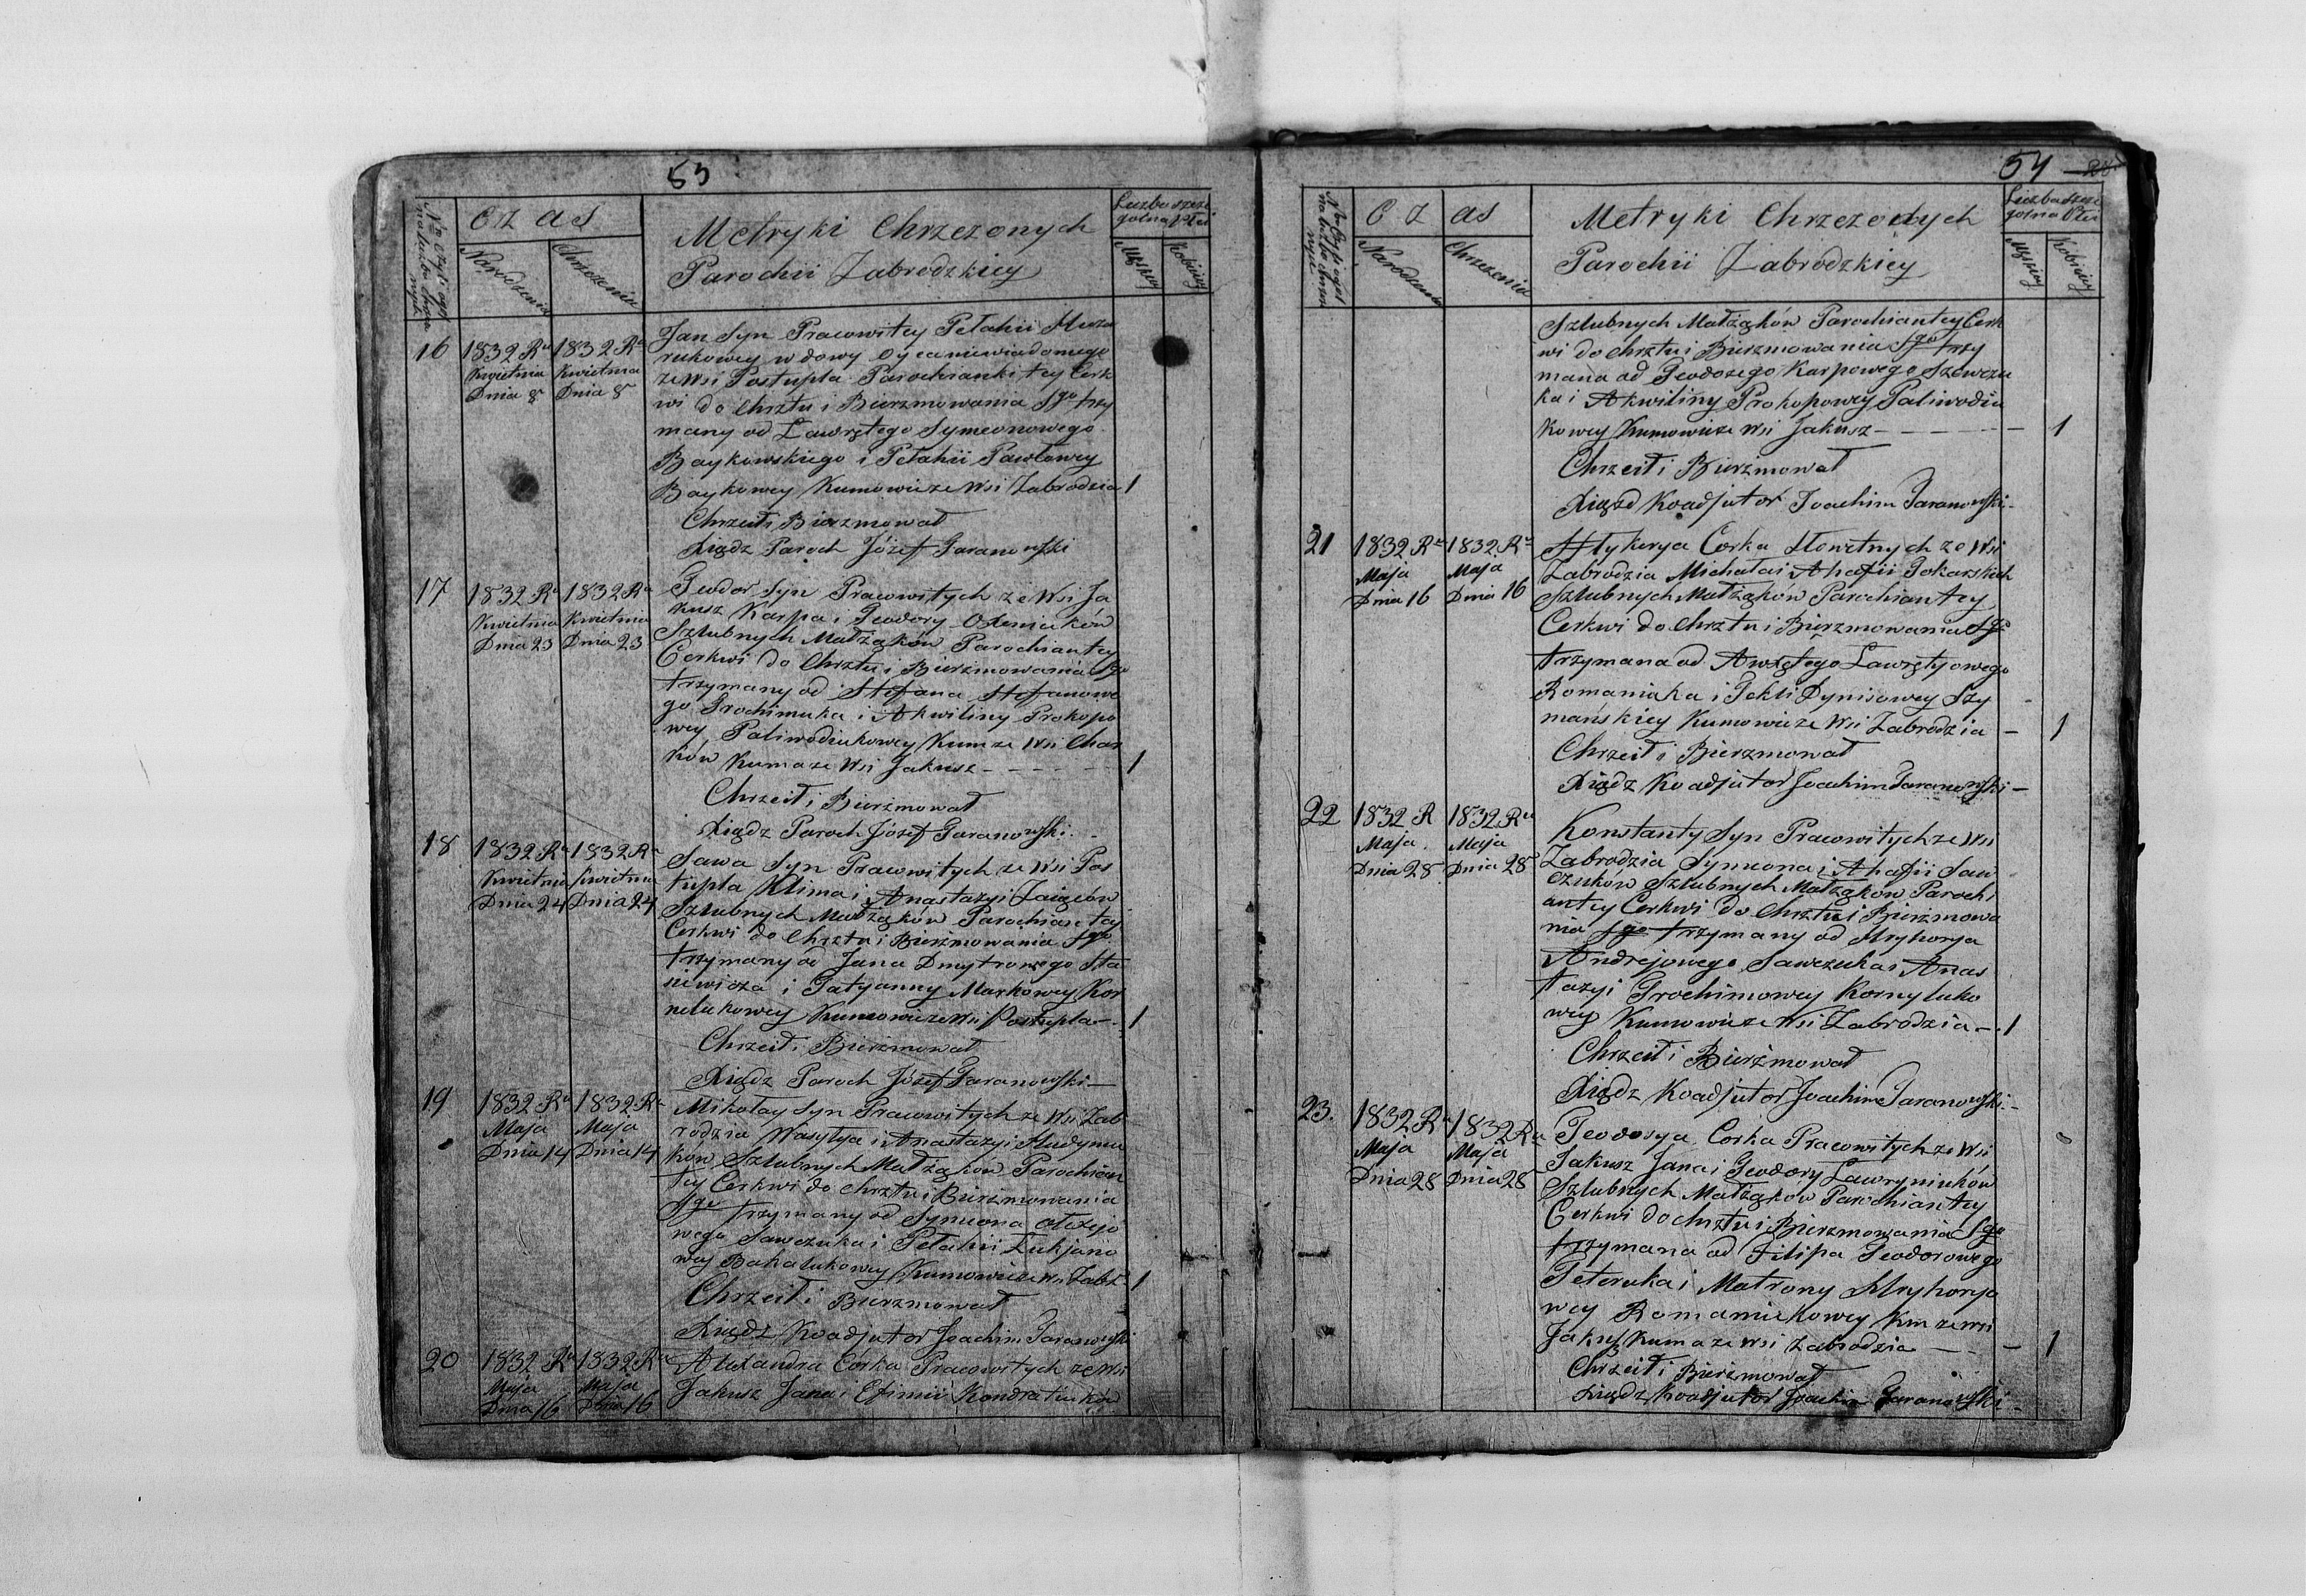 53
C z a s
Metryki Chrzczonych
Parochii Zabrodzkiey
Narodzenia
Chrzczenia
Męzkiey
Kobiecey
16
1832 Ru
Kwietnia
Dnia 8
1832 Ru
Kwietnia
Dnia 8
Jan Syn Pracowitey Pełahii
rukowey wdowy Oyca niewiadomego
ze Wsi Postupla Parochianki tey Cerk
wi do Chrztu i Bierzmowania Sgo trzy
many od Ławrętego Symeonowego
Baykowskiego i Pełahii Pawłowey
Baykowey Kumowie ze Wsi Zabrodzia 1
Chrzcił i Bierzmował
Xiądz Paroch Józef Taranowski
17
1832 Ru
Kwietnia
Dnia 23
1832 Ru
Kwietnia
Dnia 23
Teodor Syn Pracowitych ze Wsi Ja
kusz Karpa i Teodory
Szlubnych Małżąków Parochian tey
Cerkwi do Chrztu i Bierzmowania Sgo
trzymany od Stefana Stefanowe
go Trochimuka i Akwiliny Prokopo
wey Paliwodiukowey Kum ze Wsi Char
ków Kuma ze Wsi Jakusz - - - - - 1
Chrzcił i Bierzmował
Xiądz Paroch Józef Taranowski. -
18
1832 Ru
Kwietnia
Dnia 24
1832 Ru
Kwietnia
Dnia 24
Sawa Syn Pracowitych ze Wsi Pos
tupla Klima i Anastazyi Zaięców
Szlubnych Małżąków Parochian tey
Cerkwi do Chrztu i Bierzmowania Sgo
trzymany od Jana Dmytrowego Sta
siewicza i Tatyanny Markowey Kor
nelukowey Kumowie ze Wsi Postupla - 1
Chrzcił i Bierzmował
Xiądz Paroch Józef Taranowski -
19
1832 Ru
Maja
Dnia 14
1832 Ru
Maja
Dnia 14
Mikołay Syn Pracowitych ze Wsi Zab
rodzia Wasylya i Anastazyi Hudymu
ków Szlubnych Małżąków Parochian
tey Cerkwi do Chrztu i Bierzmowania
Sgo trzymany od Symeona
wego Sawczuka i Pełahii Łukjano
wey Bakalukowey Kumowie ze Wsi Zabr. 1
Chrzcił i Bierzmował
Xiądz Koadjutor Joachim Taranowski
20
1832 Ru
Maja
Dnia 16
1832 Ru
Maja
Dnia 16
Alexandra Córka Pracowitych ze Wsi
Jakusz Jana i Efimii Kondratiuków
54
C z as
Metryki Chrzczonych
Parochii Zabrodzkiey
Narodzenia
Chrzczenia
Męzkiey
Kobiecey
Szlubnych Małżąków Parochian tey Cerk
wi do Chrztu i Bierzmowania Sgo trzy
mana od Teodozego Karpowego Szewczu
ka i Akwiliny Prokopowey Paliwodiu
kowey Kumowie ze Wsi Jakusz - - - - 1
Chrzcił i Bierzmował
Xiądz Koadjutor Joachim Taranowski -
21
1832 Ru
Maja
Dnia 16
1832 Ru
Maja
Dnia 16
Hłykerya Corka Słowetnych ze Wsi
Zabrodzia Michała i Ahafii Tokarskich
Szlubnych Małżąków Parochian tey
Cerkwi do Chrztu i Bierzmowania Sgo
trzymana od Ławrętyowego
Romaniuka i Tekli Dynisowey Szy
mańskiey Kumowie ze Wsi Zabrodzia - 1
Chrzcił i Bierzmował
Xiądz Koadjutor Joachim Taranowski -
22
1832 R
Maja
Dnia 28
1832 Ru
Maja
Dnia 28
Konstanty Syn Pracowitych ze Wsi
Zabrodzia Symeona i Ahafii Saw
czuków Szlubnych Małżąków Parochi
an tey Cerkwi do Chrztu i Bierzmowa
nia Sgo trzymany od Hryhorya
Andrejowego Sawczuka i Anas
tazyi Trochimowey Kornyluko
wey Kumowie ze Wsi Zabrodzia - . 1
Chrzcił i Bierzmował
Xiądz Koadjutor Joachim Taranowski. -
23.
1832 Ru
Maja
Dnia 28
1832 Ru
Maja
Dnia 28
Teodosya Corka Pracowitych ze Wsi
Jakusz Jana i Teodory Ławryniuków
Szlubnych Małżąków Parochian tey
Cerkwi do Chrztu i Bierzmowania Sgo
trzymana od Filipa Teodorowego
Teteruka i Matrony Hryhorjo
wey Romaniukowey Kum ze Wsi
Jakusz Kuma ze Wsi Zabrodzia - - - 1
Chrzcił i Bierzmował
Xiądz Koadjutor Joachim Taranowski -